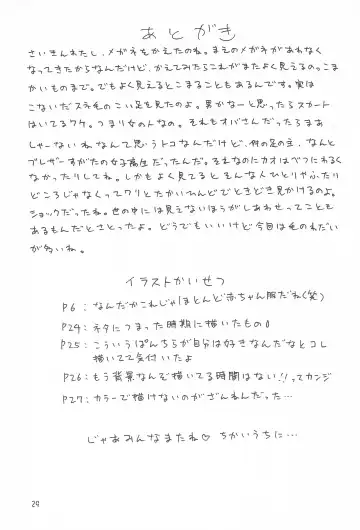 あとがき
さいきんわたし、メガネをかえたのね。まえのメガネがあわなく
なってきたからなんだけど、かえてみたらこれがまたよく見えるのっこま
かいものまで。でもよく見えるとこまることもあるんです。実は
こないだスネ毛のこい足を見たのよ。男かなーと思ったらスカート
はいてるワケ。つまり女の人なの。それもオバさんだったらまあ
しゃーないねなんて思うトコなんだけど、例の足の主、なんと
ブレザーすがたの女子高生だったんだ。それなのにカオはべつにわるく
なかったりしてね。しかもよく見てると そんな人ひとりやふたり
どころじゃなくってワリとたかいひんどでときどき見かけるのよ。
ショックだったね。世の中には見えないほうがしあわせってことも
あるもんだとさとったよ。どうでもいいけど今回は毛のねだい
が多いね。
イラストかいせつ
P6：なんだかこれじゃほとんど赤ちゃん服だね(笑)
P24：ネタにつまった時期に描いたもの
P25：こういうぱんちらが自分は好きなんだなとコレ
描いてて気付いたよ
P26：もう背景なんぞ描いてる時間はない!!ってカンジ
P27：カラーで描けないのがざんねんだった…
じゃあみんなまたね♡ ちかいうちに…
29